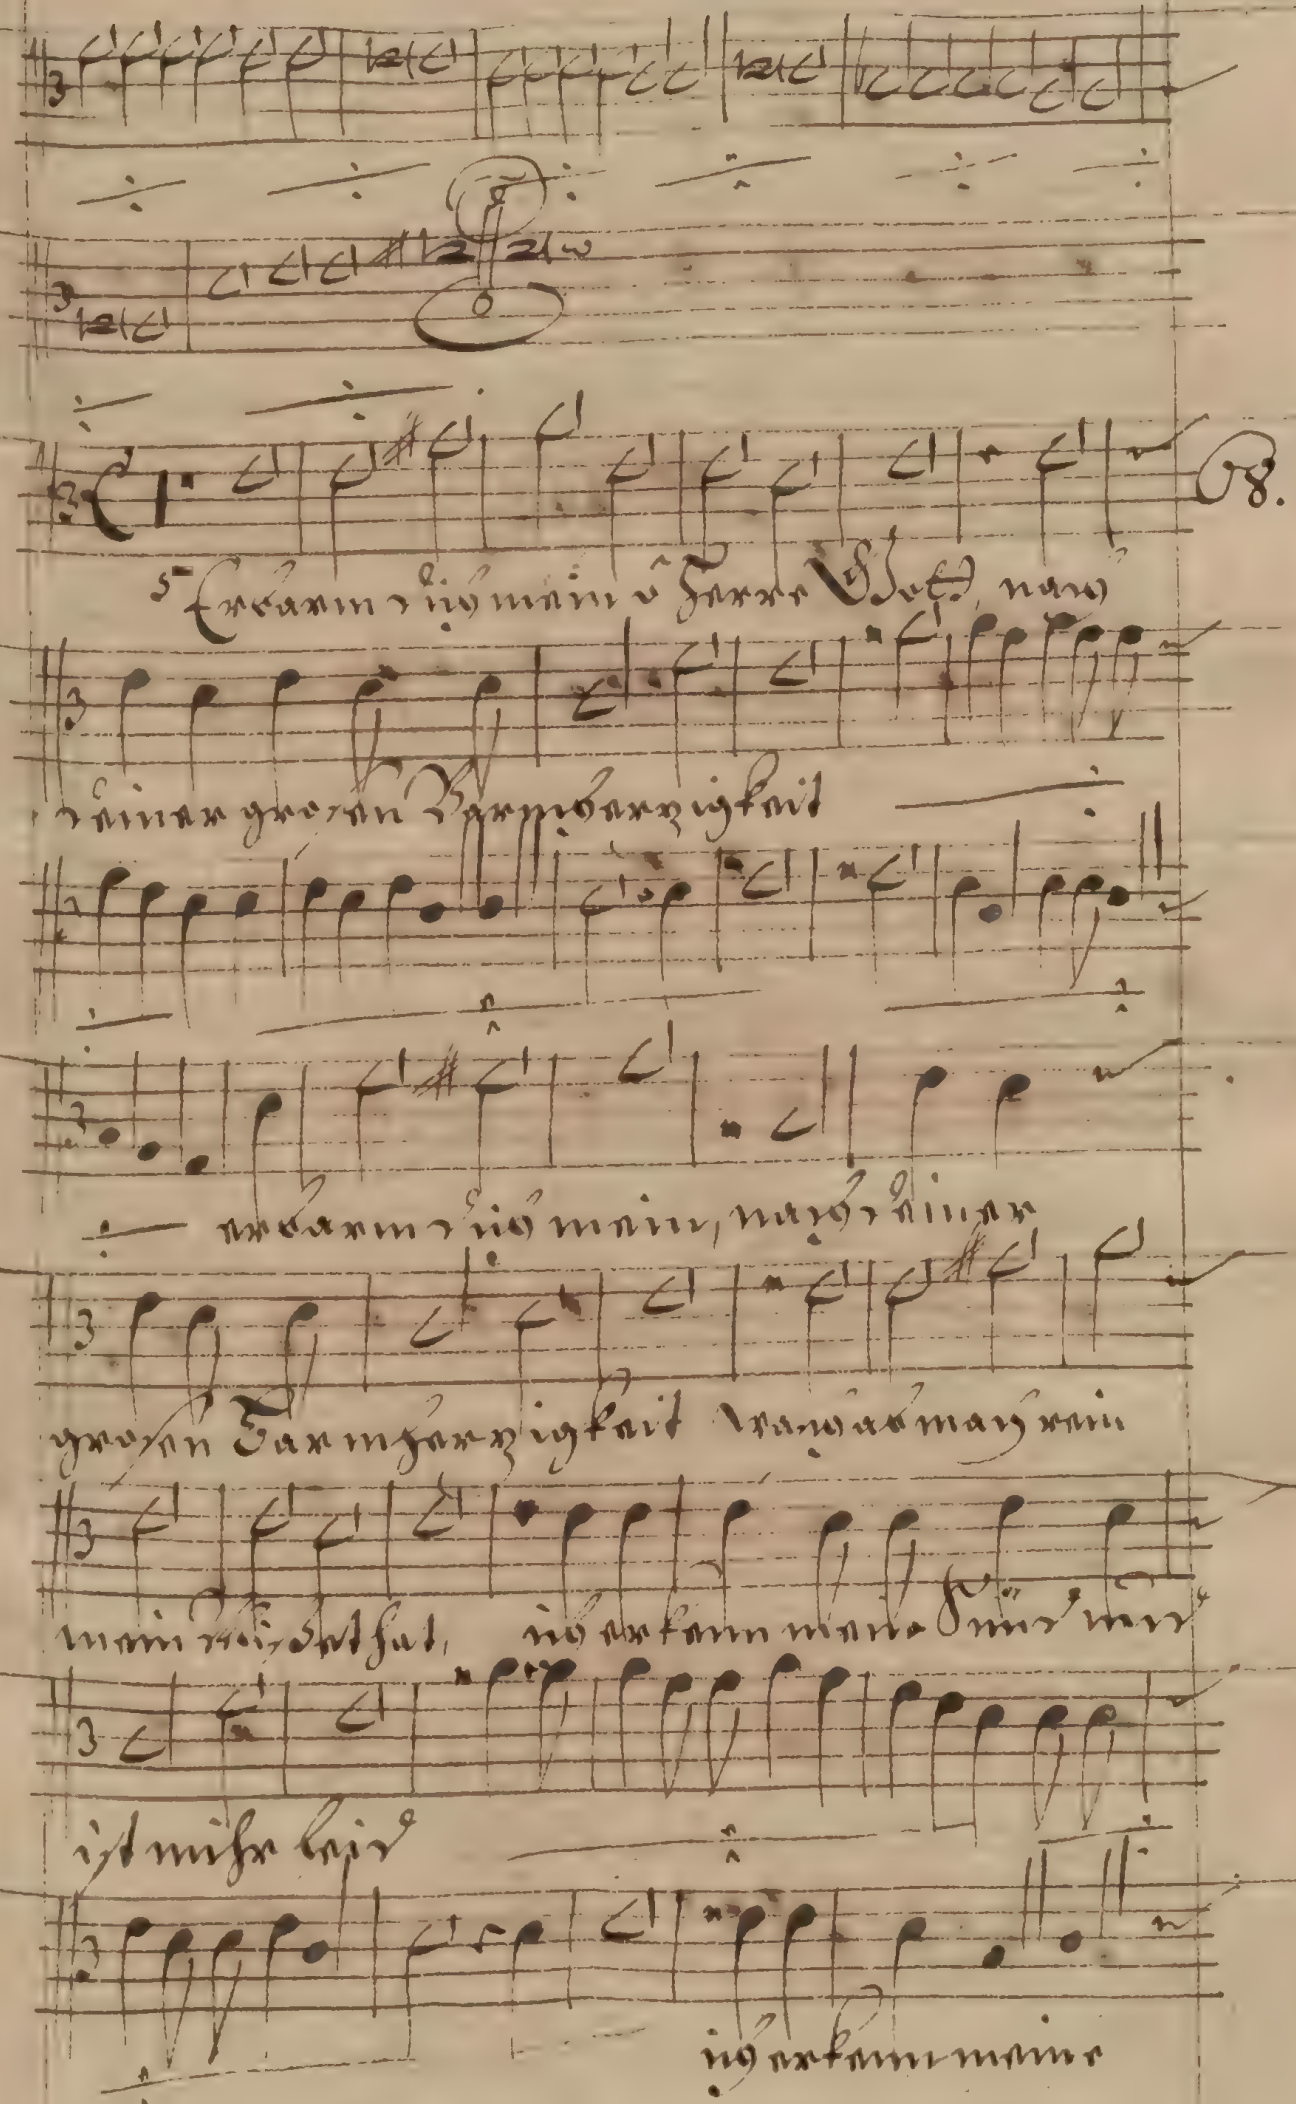 68.
5 Erbarm dich mein ô Herre Gott, nach
deiner grosen Barmherzigkeit
erbarm dich mein, nach deiner
grosen Barmherzigkeit wasch ab mach rein
mein hat, ich erkenn meine Sünd und
ist mihr leid
ich erkenn meine